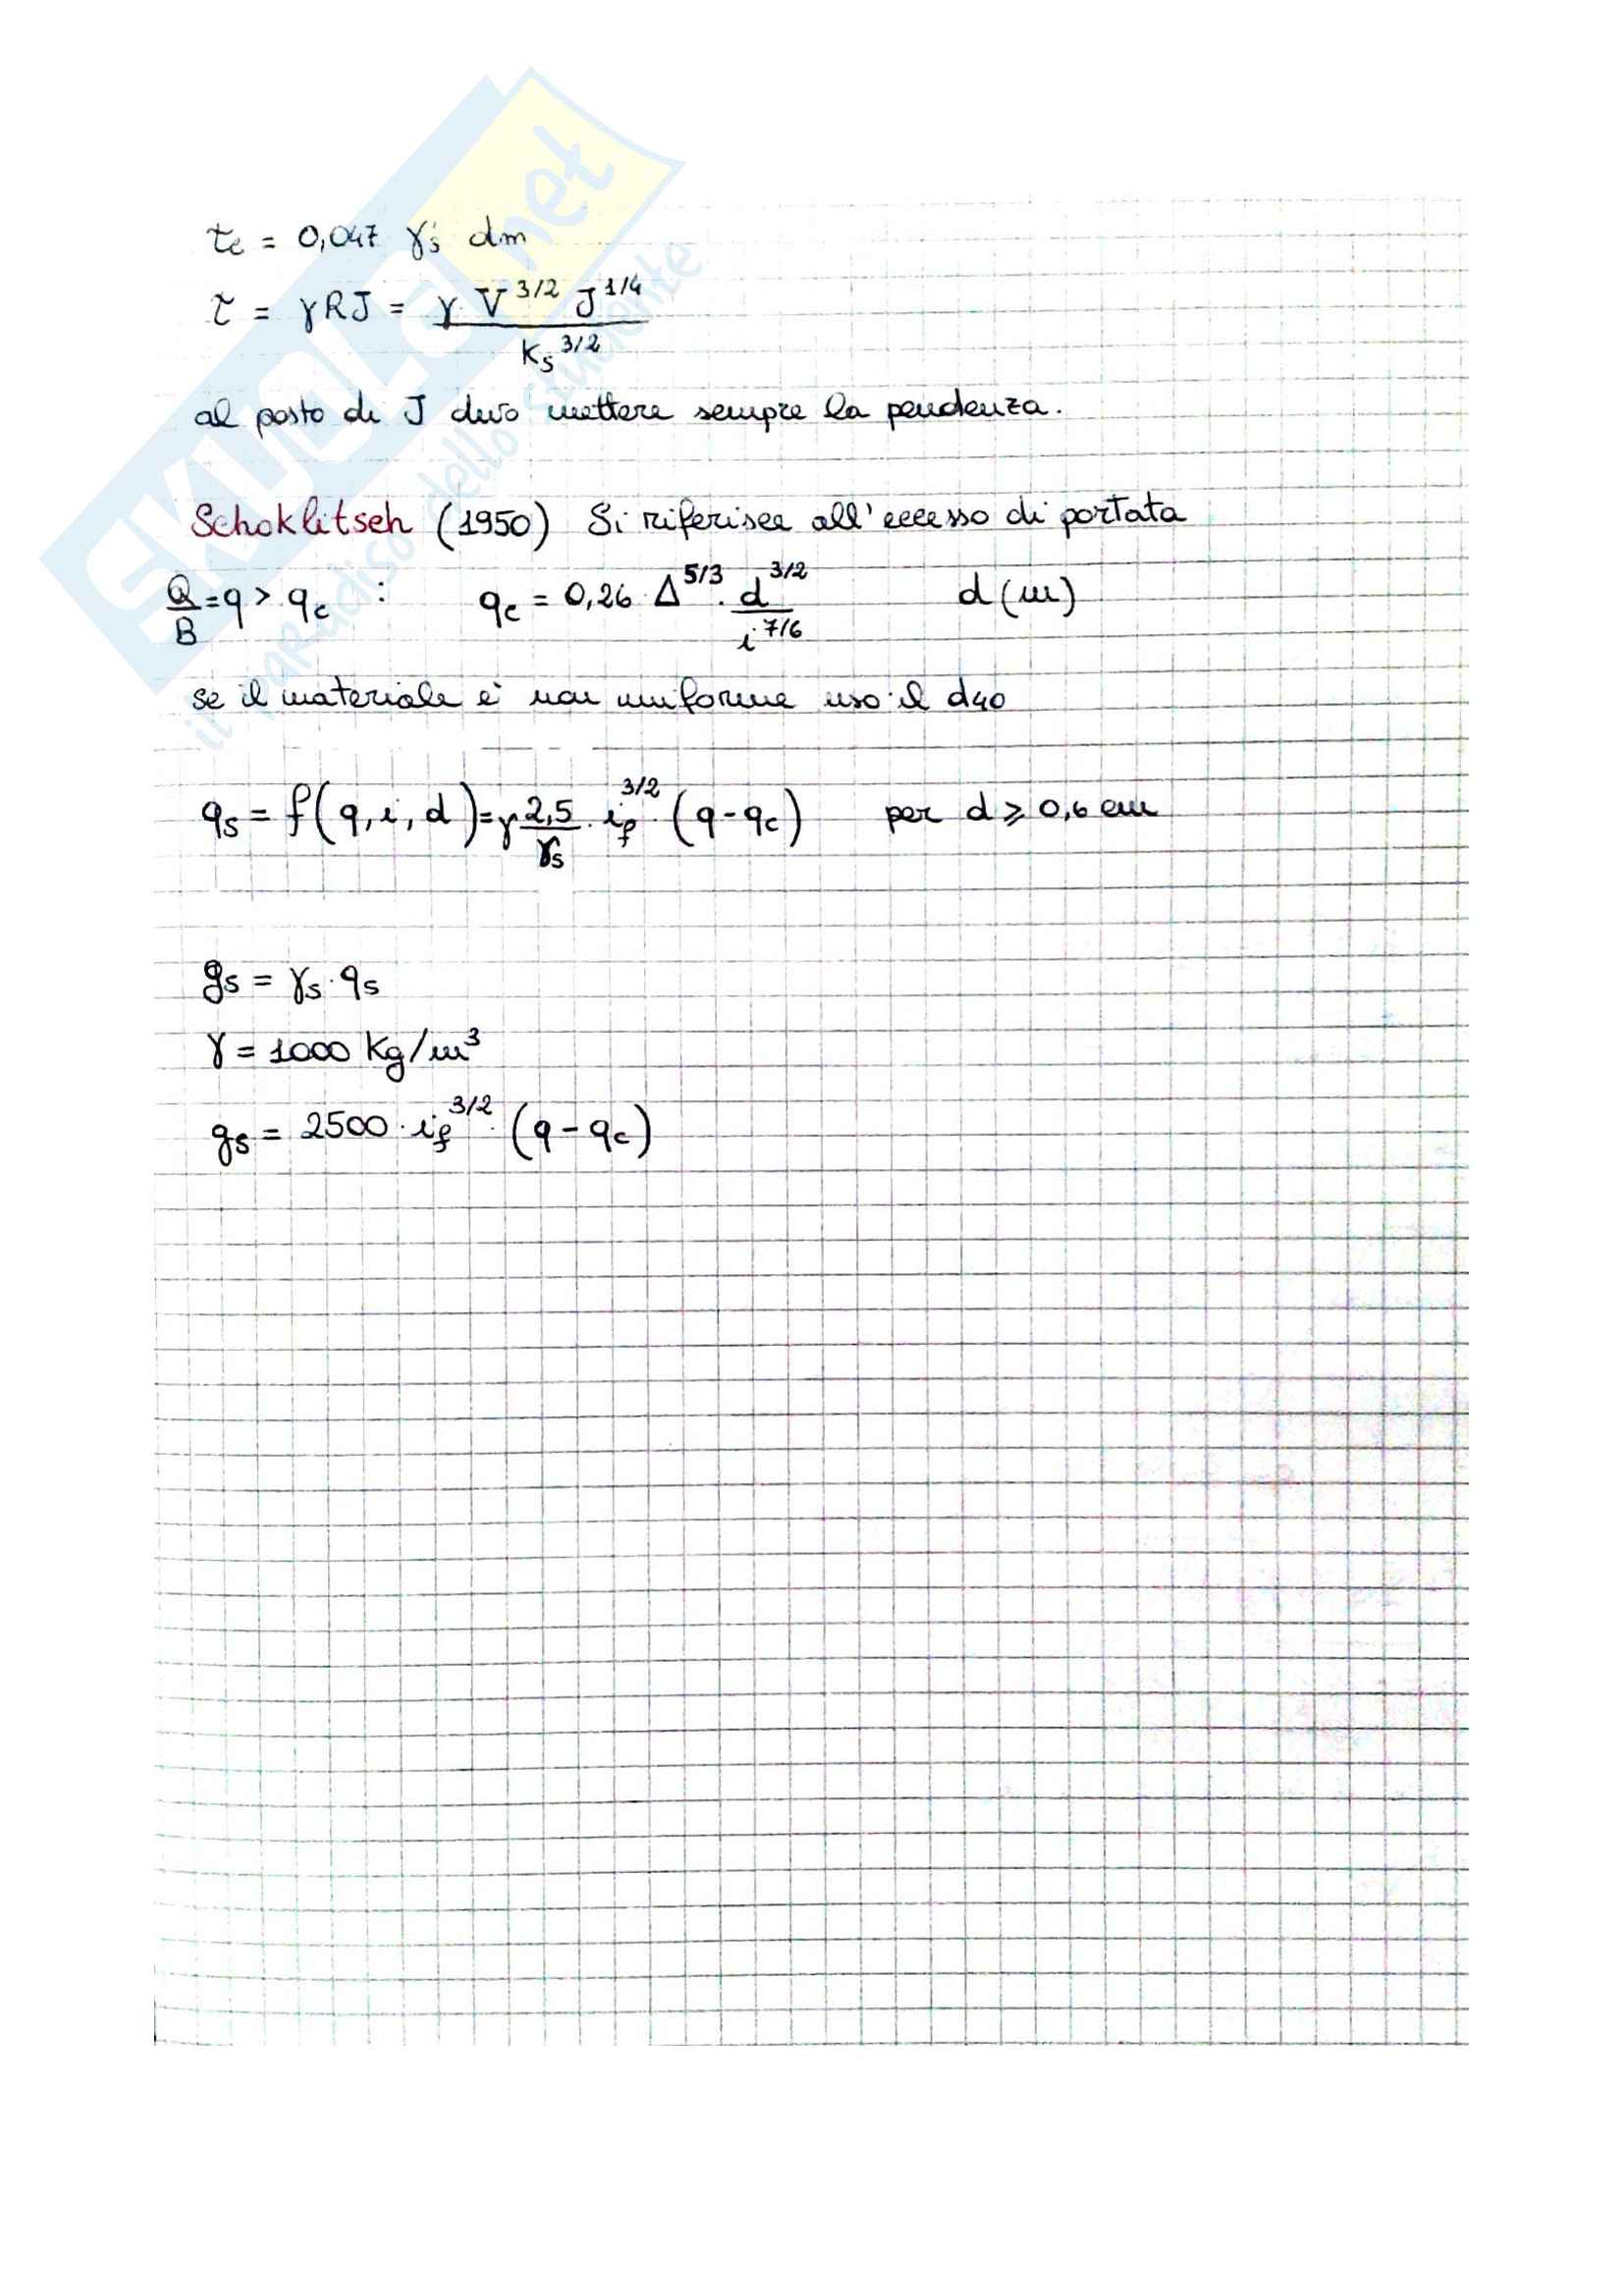 τc = 0,047 γs' dm
τ = γRJ = γ V^3/2 J^1/4 / Ks^3/2
al posto di J devo mettere sempre la pendenza.
Schoklitsch (1950) Si riferisce all'eccesso di portata
Q/B = q > qc : qc = 0,26 · Δ^5/3 · d^3/2 / i^7/6 d (m)
se il materiale è non uniforme uso il d40
qs = f(q, i, d) = γ 2,5/γs · if^3/2 · (q - qc) per d ⩾ 0,6 cm
gs = γs · qs
γ = 1000 Kg/m³
gs = 2500 · if^3/2 · (q - qc)
SKUOLA.net
il paradiso dello studente